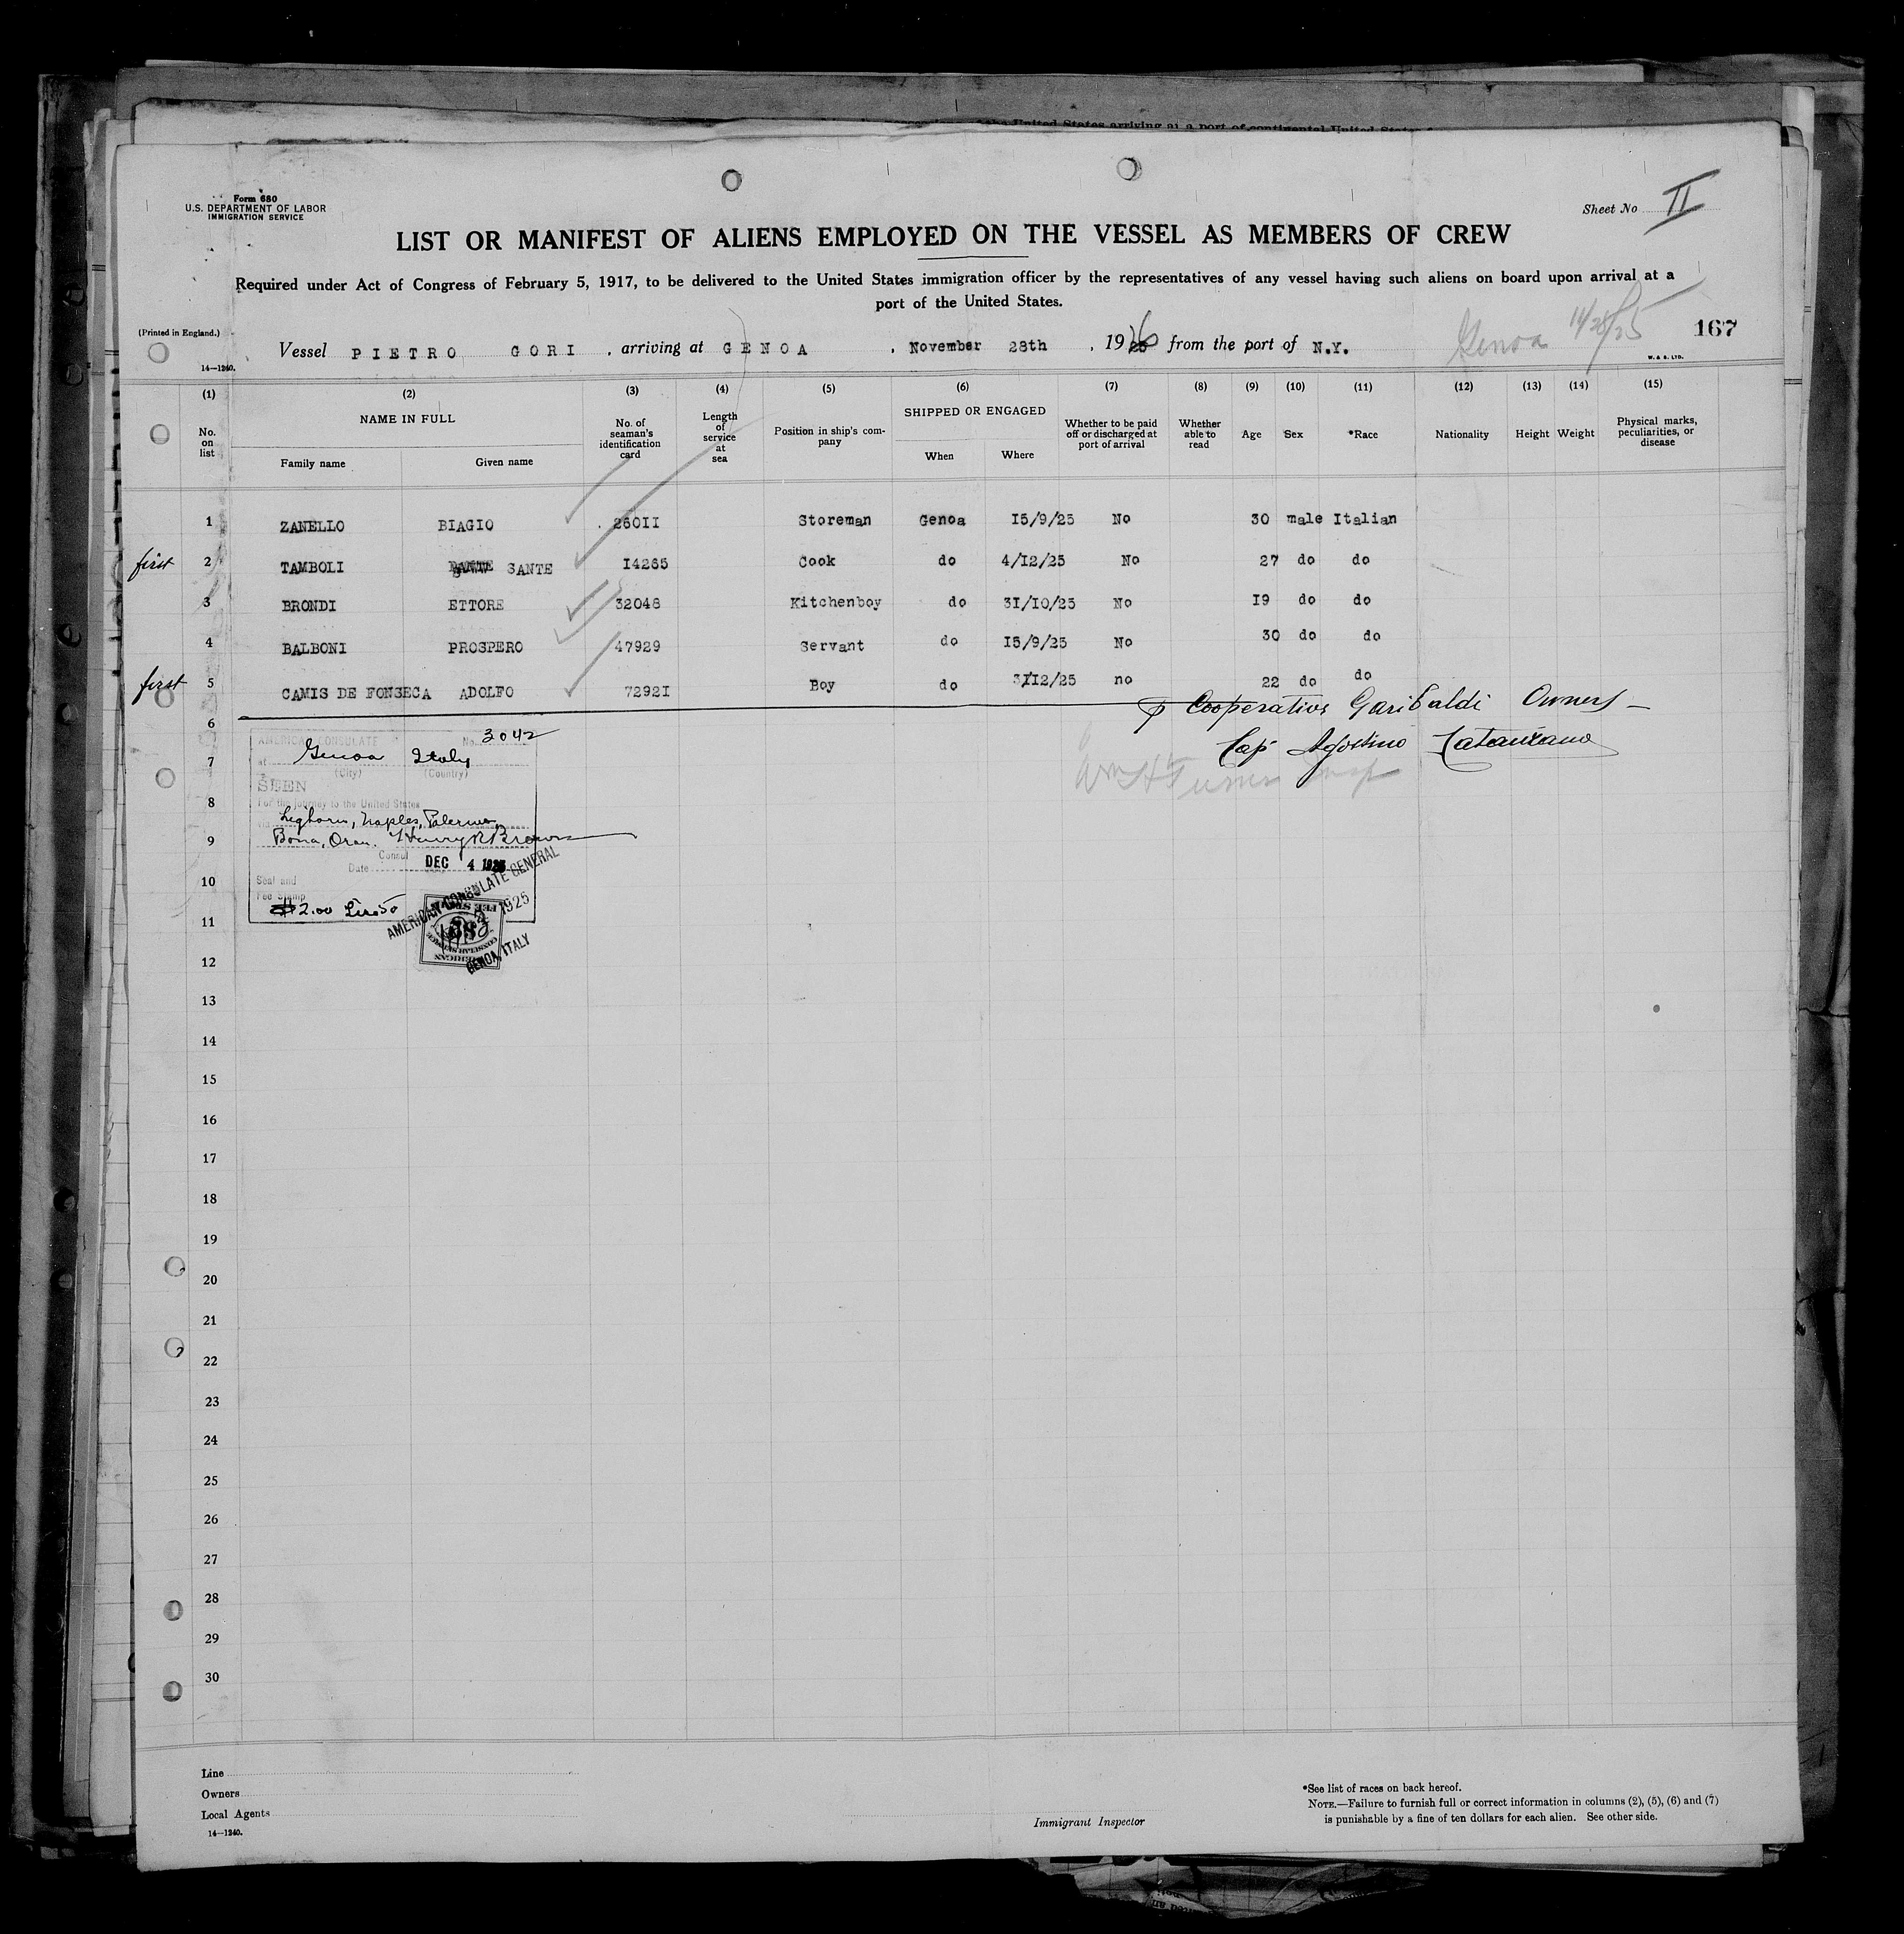 the United States arriving at a port of continental United States
Form 680
U.S. DEPARTMENT OF LABOR
IMMIGRATION SERVICE
Sheet No II
LIST OR MANIFEST OF ALIENS EMPLOYED ON THE VESSEL AS MEMBERS OF CREW
Required under Act of Congress of February 5, 1917, to be delivered to the United States immigration officer by the representatives of any vessel having such aliens on board upon arrival at a
port of the United States.
(Printed in England.)
Genoa 11/28/25 167
Vessel PIETRO GORI , arriving at GENOA , November 28th , 1926 from the port of N.Y.
14—1240. W. & S. LTD.
(1) (2) (3) (4) (5) (6) (7) (8) (9) (10) (11) (12) (13) (14) (15)
No. on list NAME IN FULL Family name Given name No. of seaman's identification card Length of service at sea Position in ship's company SHIPPED OR ENGAGED When Where Whether to be paid off or discharged at port of arrival Whether able to read Age Sex *Race Nationality Height Weight Physical marks, peculiarities, or disease
1 ZANELLO BIAGIO 26011 Storeman Genoa I5/9/25 No 30 male Italian
first 2 TAMBOLI SANTE I4265 Cook do 4/I2/25 No 27 do do
3 BRONDI ETTORE 32048 Kitchenboy do 3I/I0/25 No I9 do do
4 BALBONI PROSPERO 47929 Servant do I5/9/25 No 30 do do
first 5 CAMIS DE FONSECA ADOLFO 7292I Boy do 3/I2/25 no 22 do do
p Cooperativa Garibaldi Owners
Cap Agostino Catanzano
6
7
8
9
10
11
12
13
14
15
16
17
18
19
20
21
22
23
24
25
26
27
28
29
30
AMERICAN CONSULATE No. 3042
at Genoa Italy
(City) (Country)
SEEN
For the journey to the United States
via Leghorn, Naples, Palermo,
Bona, Oran. Henry R Brown
Consul
Date DEC 4 1925
Seal and
Fee Stamp
$2.00 Lire 50
AMERICAN CONSULATE GENERAL
1925
GENOA, ITALY
AMERICAN CONSULAR SERVICE
FEE STAMP
Line
Owners
Local Agents
14—1240.
Immigrant Inspector
*See list of races on back hereof.
NOTE.—Failure to furnish full or correct information in columns (2), (5), (6) and (7)
is punishable by a fine of ten dollars for each alien. See other side.